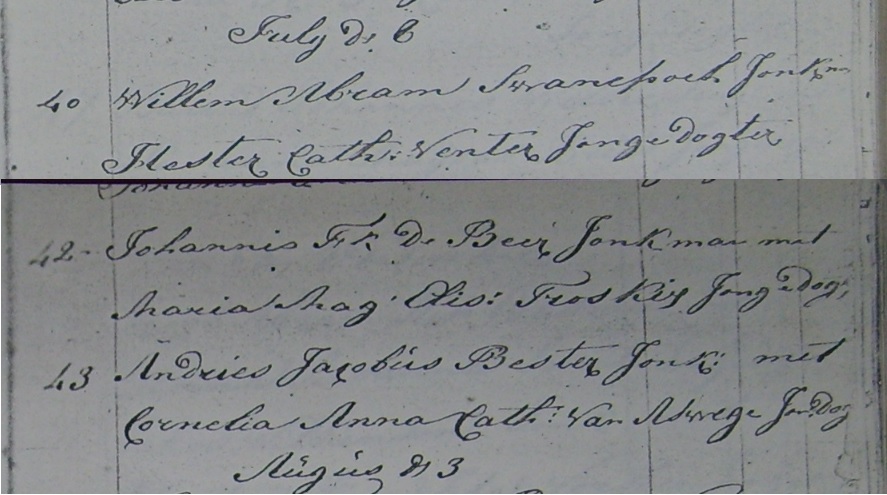 July ds 6
40 Willem Abram Swanepoel Jonkm
Hester Cath: Venter Jonge Dogter
42 - Johannis Fk De Beer Jonkman met
Maria Mag: Elis: Froskis Jong Dog:
43 Andries Jacobus Bester Jonk: met
Cornelia Anna Cath: Van Aswege Jon: Dog
Augus ds 3